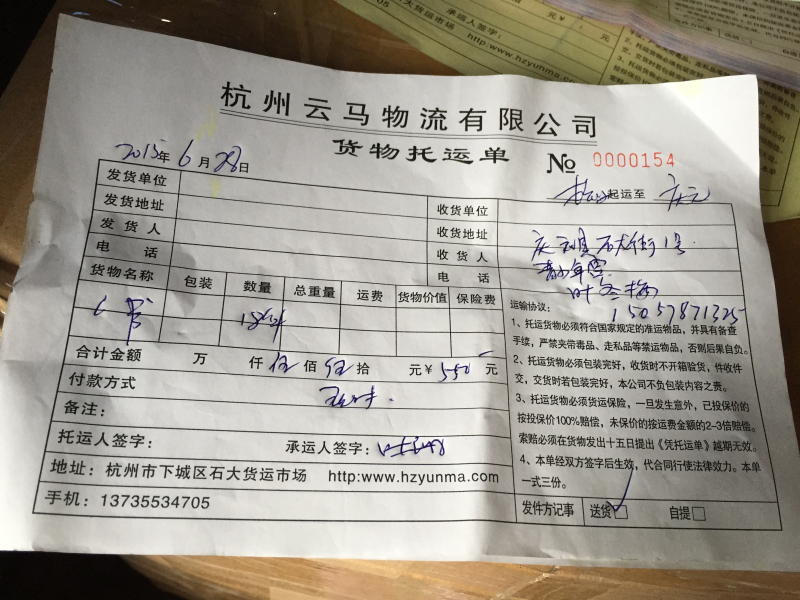 承运人签字:
大货运市场 http:www.hzyunma.com
杭州云马物流有限公司
货物托运单 № 0000154
2015年6月28日
起运至 庆元
发货单位
收货单位
发货地址
收货地址 庆元县石龙街1号
发货人
收货人
电话
电话 15057871325
货物名称 包装 数量 总重量 运费 货物价值 保险费
运输协议:
1、托运货物必须符合国家规定的准运物品，并具有备查
手续，严禁夹带毒品、走私品等禁运物品，否则后果自负。
2、托运货物必须包装完好，收货时不开箱验货，件收件
交，交货时若包装完好，本公司不负包装内容之责。
3、托运货物必须货运保险，一旦发生意外，已投保价的
按投保价100%赔偿，未保价的按运费金额的2-3倍赔偿。
索赔必须在货物发出十五日提出《凭托运单》越期无效。
4、本单经双方签字后生效，代合同行使法律效力。本单
一式三份。
合计金额 万 仟伍佰伍拾 元¥550元
付款方式
备注:
托运人签字: 承运人签字:
地址: 杭州市下城区石大货运市场 http:www.hzyunma.com
手机: 13735534705
发件方记事 送货 自提